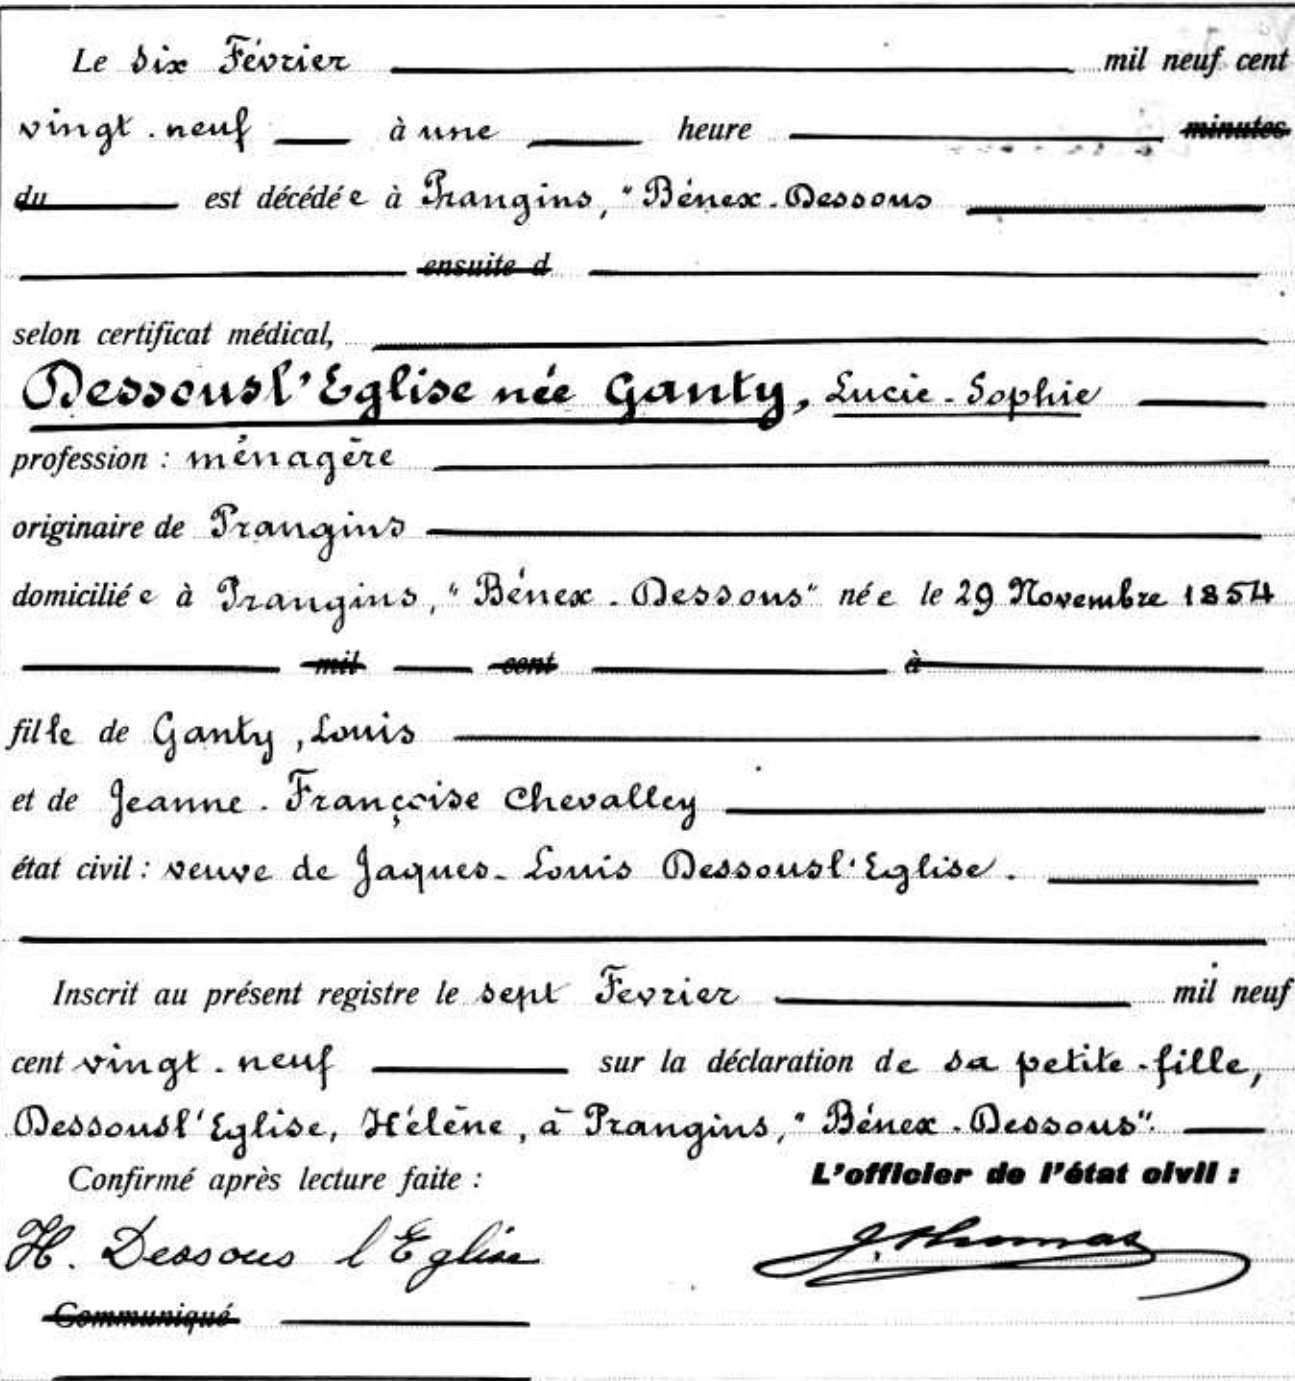 Le six Février mil neuf cent
vingt-neuf à une heure minutes
du est décédée à Prangins, "Bénex-Dessous
ensuite d
selon certificat médical,
Dessousl'Eglise née Ganty, Lucie-Sophie
profession : ménagère
originaire de Prangins
domiciliée à Prangins, "Bénex-Dessous" née le 29 Novembre 1854
mil cent à
fille de Ganty, Louis
et de Jeanne-Françoise Chevalley
état civil : veuve de Jaques-Louis Dessousl'Eglise.
Inscrit au présent registre le sept Fevrier mil neuf
cent vingt-neuf sur la déclaration de sa petite-fille,
Dessousl'Eglise, Hélène, à Prangins, "Bénex-Dessous".
Confirmé après lecture faite : L'officier de l'état civil :
H. Dessous l'Eglise J. Thomas
Communiqué